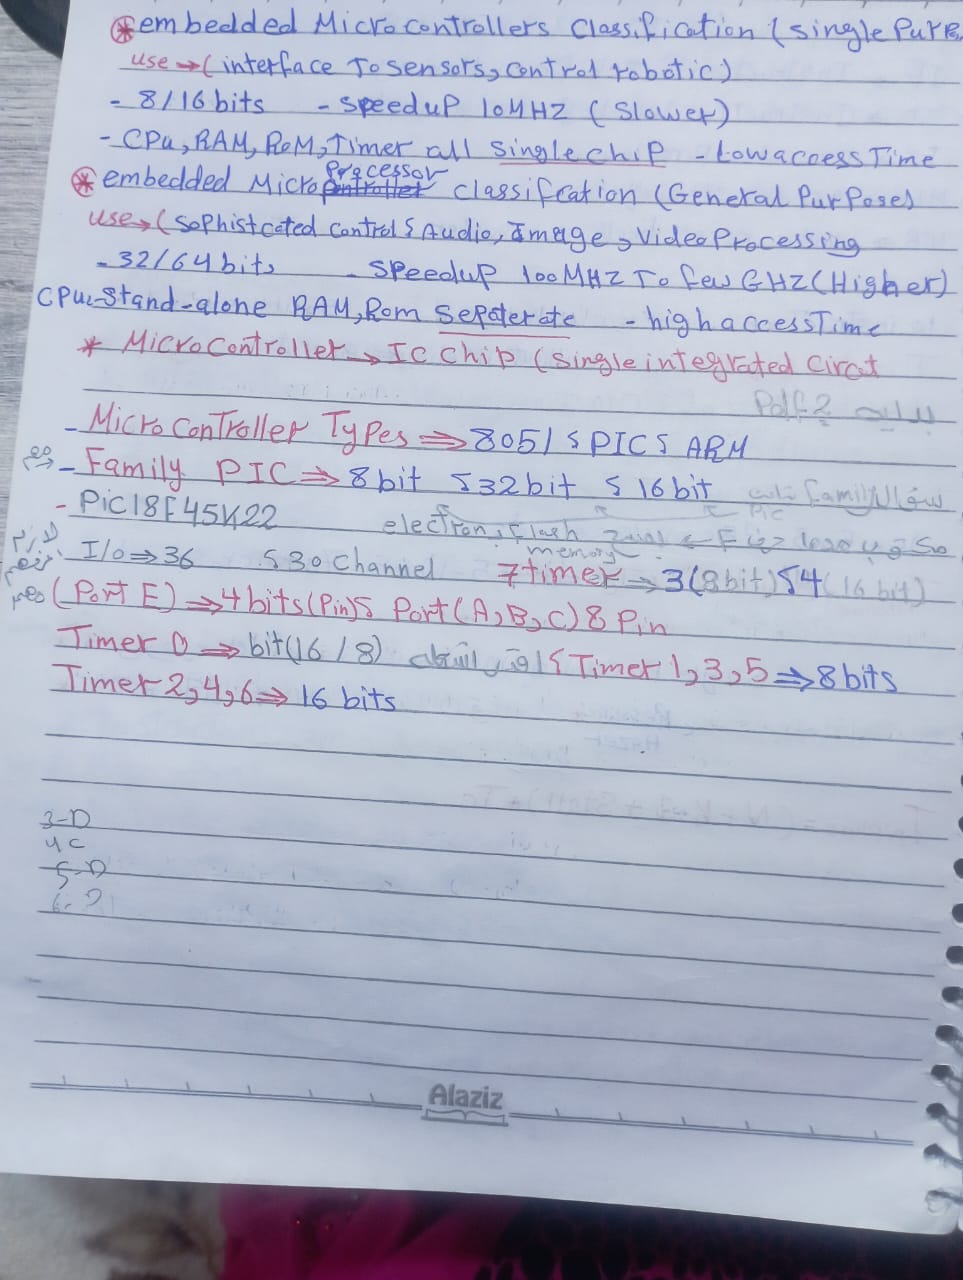 * embedded Microcontrollers Classification (single Purp
use → (interface To sensors, control robotic)
- 8/16 bits - speed up 10MHZ (Slower)
- CPu, RAM, ROM, Timer all Single chip - Low access Time
* embedded MicroProcessor classification (General Purpose)
use → (Sophistcated control & Audio, Image, Video Processing
- 32/64 bits - speed up 100MHZ To few GHZ (Higher)
CPu - Stand-alone RAM, Rom Sepaterate - high access Time
* Microcontroller → IC Chip (single integrated Circut
Pdf 2
- Microcontroller Types ⇒ 8051 & PIC & ARM
- Family PIC ⇒ 8 bit & 32 bit & 16 bit
family
PIC
- Pic18F45K22
electron, flash memory
I/o ⇒ 36 & 30 channel 7 timer ⇒ 3(8bit) & 4(16 bit)
(Port E) ⇒ 4 bits (Pin) & Port (A, B, C) 8 Pin
Timer 0 ⇒ bit (16 / 8) & Timer 1, 3, 5 ⇒ 8 bits
Timer 2, 4, 6 ⇒ 16 bits
3-D
4 C
5-D
6- ?
Alaziz